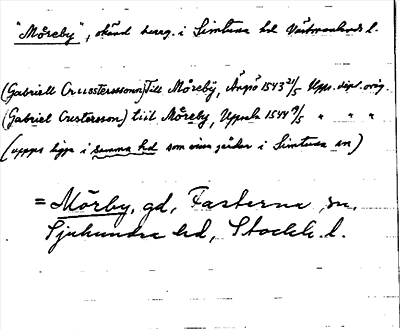 "Mörby", okänd herrg. i Simtuna hd Västmanlands l.
(Gabriell Cruustersson) till Mörebÿ, Ängsö 1543 21/5 Upps. dipl. orig.
(Gabriel Crustersson) till Möreby, Upsala 1544 9/5 " " "
(uppges ligga i samma hd som sina gårdar i Simtuna sn)
= Mörby, gd, Fasterna sn,
Sjuhundra hd, Stockh. l.